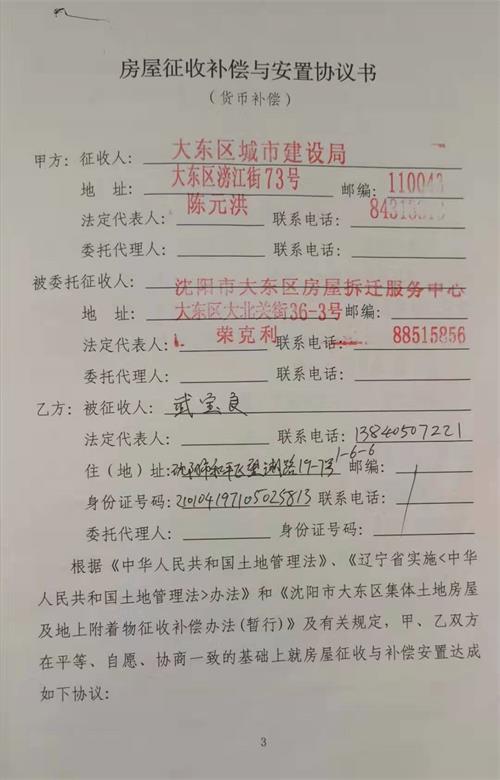 房屋征收补偿与安置协议书
（货币补偿）
甲方：征收人：大东区城市建设局
地 址：大东区滂江街73号 邮编：110043
法定代表人：陈元洪 联系电话：843
委托代理人： 联系电话：
被委托征收人：沈阳市大东区房屋拆迁服务中心
地 址：大东区大北关街36-3号 邮编：
法定代表人：荣克利 联系电话：88515856
委托代理人： 联系电话：
乙方：被征收人：武宝良
法定代表人： 联系电话：13840507221
1-6-6
住（地）址：沈阳市和平区望湖路19-7号 邮编：
身份证号码：210104197105025813 联系电话：
委托代理人： 身份证号码：
根据《中华人民共和国土地管理法》、《辽宁省实施<中华
人民共和国土地管理法>办法》和《沈阳市大东区集体土地房屋
及地上附着物征收补偿办法(暂行)》及有关规定，甲、乙双方
在平等、自愿、协商一致的基础上就房屋征收与补偿安置达成
如下协议：
3